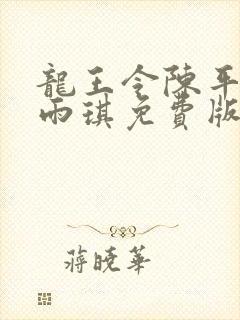 龍王令陳平
雨琪免費版
蔣曉華